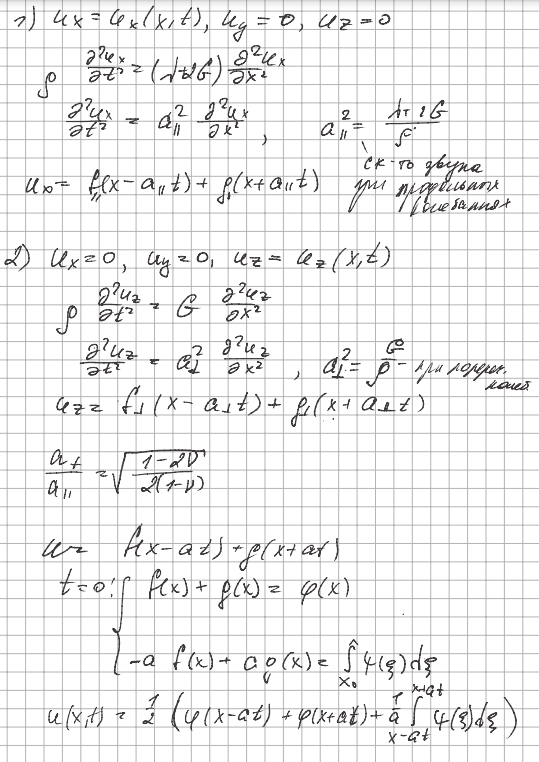 1) u_x = u_x(x,t), u_y = 0, u_z = 0
ρ ∂²u_x/∂t² = (λ+2G) ∂²u_x/∂x²
∂²u_x/∂t² = a_∥² ∂²u_x/∂x² , a_∥² = (λ+2G)/ρ
ск-ть звука
u_x = f_∥(x-a_∥t) + g_∥(x+a_∥t) при продольных
колебаниях
2) u_x = 0, u_y = 0, u_z = u_z(x,t)
ρ ∂²u_z/∂t² = G ∂²u_z/∂x²
∂²u_z/∂t² = a_⊥² ∂²u_z/∂x² , a_⊥² = G/ρ - при попереч.
u_z = f_⊥(x-a_⊥t) + g_⊥(x+a_⊥t)
a_⊥/a_∥ = √((1-2ν)/(2(1-ν)))
u = f(x-at) + g(x+at)
t=0: { f(x) + g(x) = φ(x)
-a f(x) + a g(x) = ∫_{x₀}^{x} ψ(ξ)dξ
u(x,t) = 1/2 (φ(x-at) + φ(x+at) + 1/a ∫_{x-at}^{x+at} ψ(ξ)dξ)